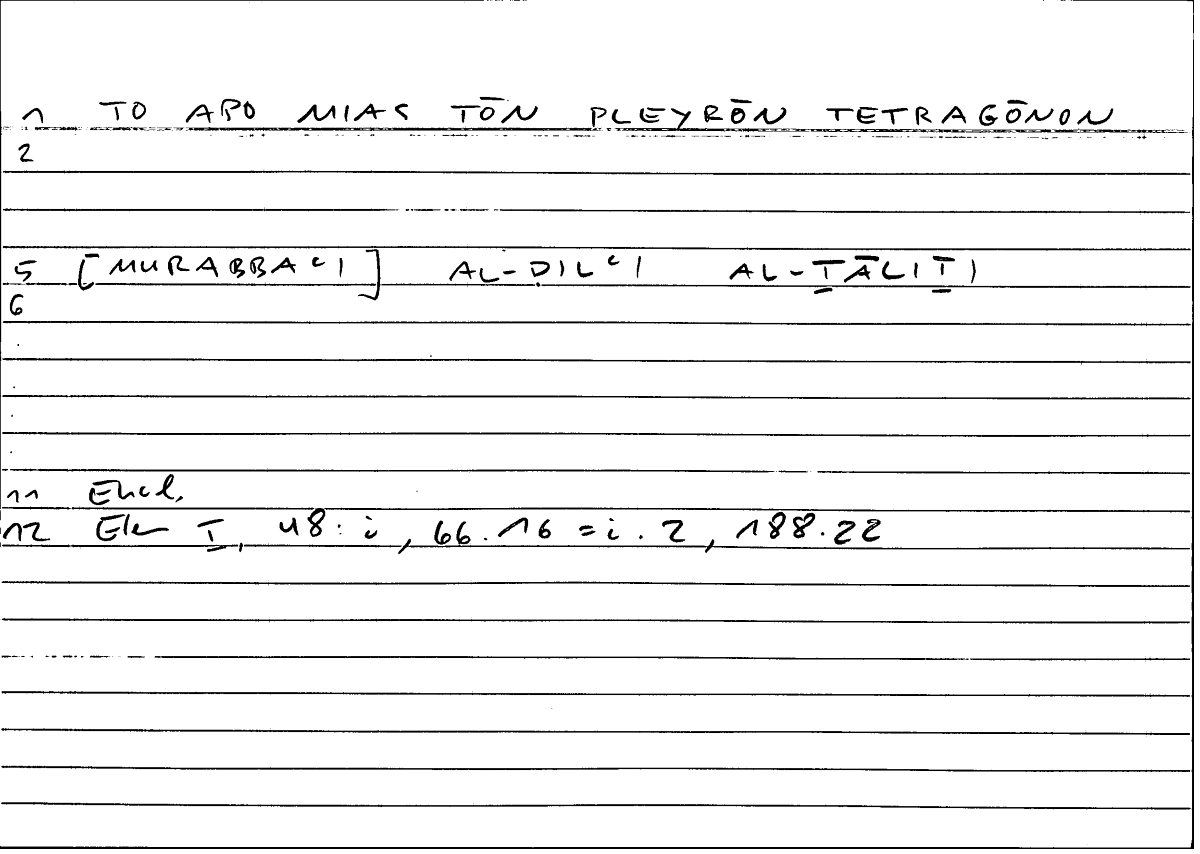 1 TO APO MIAS TŌN PLEYRŌN TETRAGŌNON
2
5 [MURABBAʿI] AL-ḌILʿI AL-ṮĀLIṮI
6
.
.
.
.
11 Eucl.
12 Elem I, 48: i, 66.16 = i. 2, 188.22